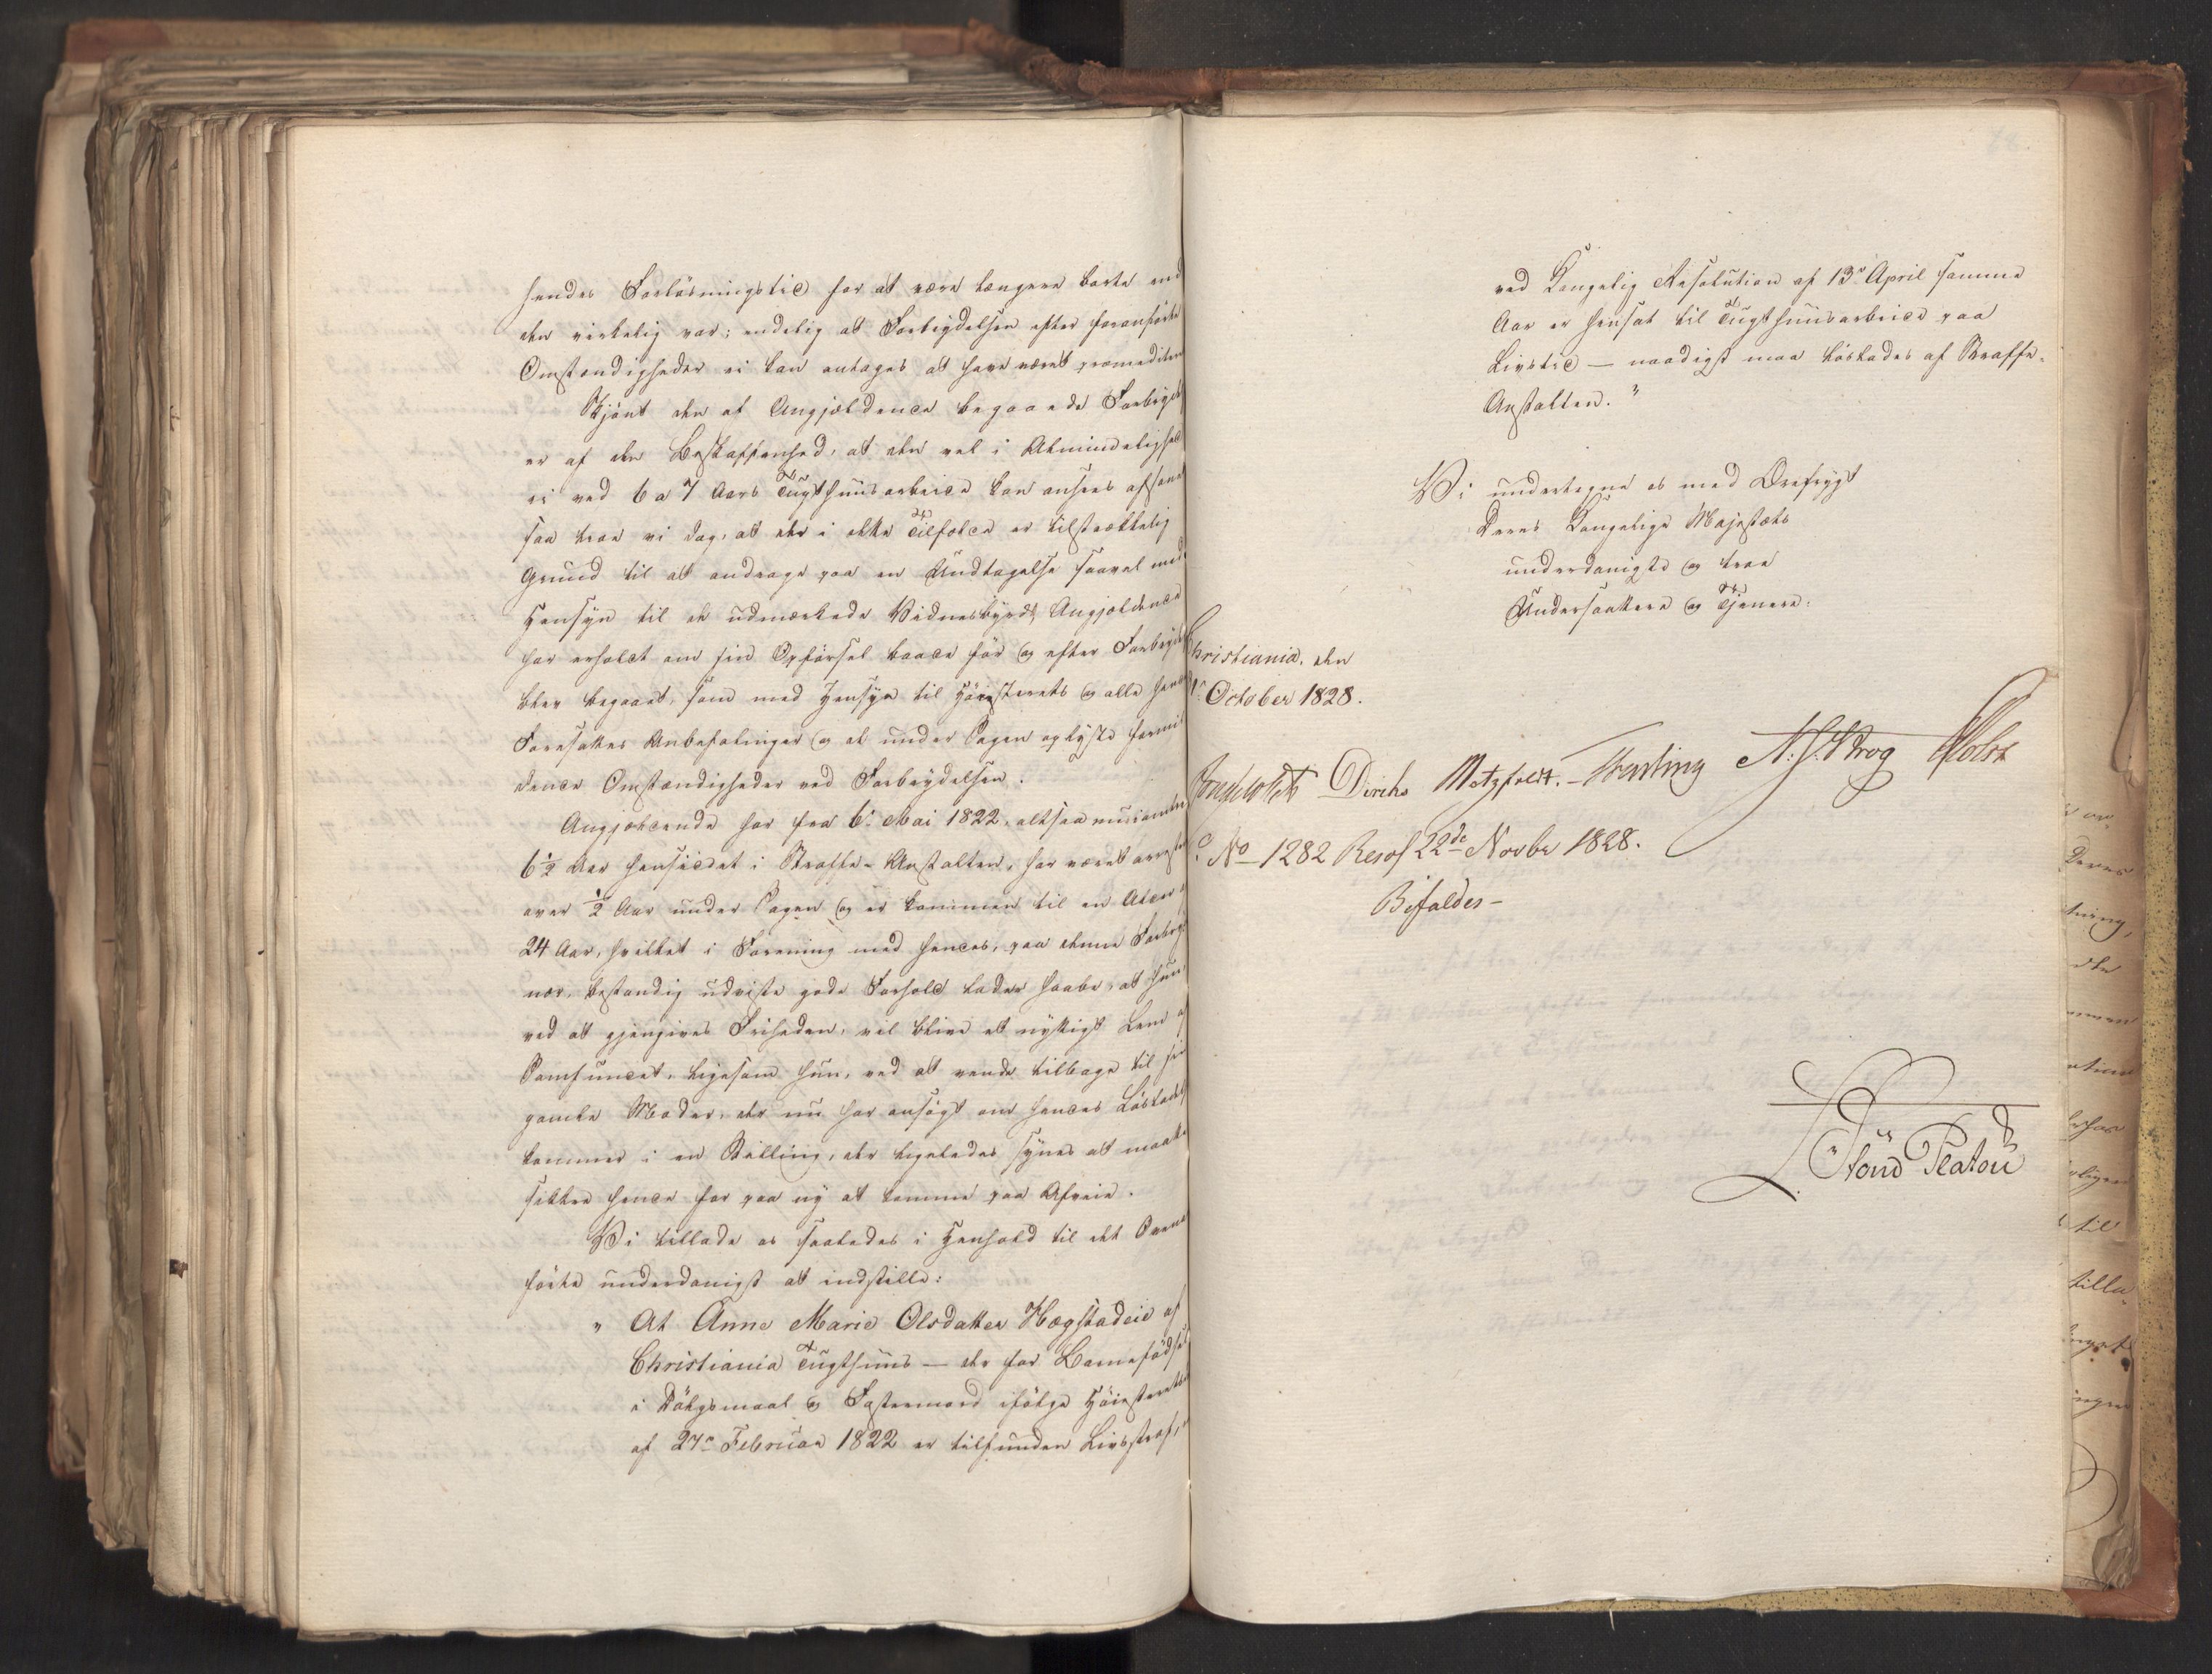 hendes Forløsningstid for at være længere borte end
den virkelig var; endelig at Forbrydelsen efter foranførte
Omstændigheder ei kan antages at have været præmediteret
Skjönt den af Angjældende begaaede Forbrydelse
er af den Beskaffenhed, at den vel i Almindelighed
ei ved 6 a 7 Aars Tugthuusarbeide kan ansees afsonet
saa troe vi dog, at der i dette Tilfælde er tilstrækkelig
Grund til at andrage paa en Undtagelse saavel med
Hensyn til de udmærkede Vidnesbyrd, Angjældende
har erholdt om sin Opførsel baade før og efter Forbrydelsen
blev begaaet, som med Hensyn til Höiesterets og alle
Foresattes Anbefalinger og de under Sagen oplyste formil
dende Omstændigheder ved Forbrydelsen.
Angjældende har fra 6te Mai 1822, altsaa nu omtrent
6½ Aar hensiddet i Straffe-Anstalten, har været arresteret
over ½ Aar under Sagen og er kommen til en Alder af
24 Aar, hvilket i Forening med hendes, paa denne Forbrydelse
nær, bestandig udviste gode Forhold lader haabe, at hun,
ved at gjengives Friheden, vil blive et nyttigt Lem af
Samfundet, ligesom hun, ved at vende tilbage til sin
gamle Moder, der nu har ansögt om hendes Løsladelse
kommer i en Stilling, der ligeledes synes at maatte
sikkre hende for paa ny at komme paa Afveie.
Vi tillade os saaledes i Henhold til det Oven
førte underdanigst at indstille:
" At Anne Marie Olsdatter Hægstadeie af
Christiania Tugthuus — der for Barnefødsel
i Dölgsmaal og Fostermord ifölge Höiesteretsdom
af 27de Februar 1822 er tilfunden Livsstraf,
ved Kongelig Resolution af 13de April samme
Aar er hensat til Tugthuusarbeide paa
Livstid — naadigst maa løslades af Straffe-
Anstalten."
Vi undertegne os med Ærefrygt
Deres Kongelige Majestæts
underdanigste og troe
Undersaatter og Tjenere.
Christiania, den
October 1828.
Diriks Motzfeldt. Treschow N. J. Krog Holst
No 1282 Resol 22de Novbr 1828.
Bifaldes—
Stoud Platou